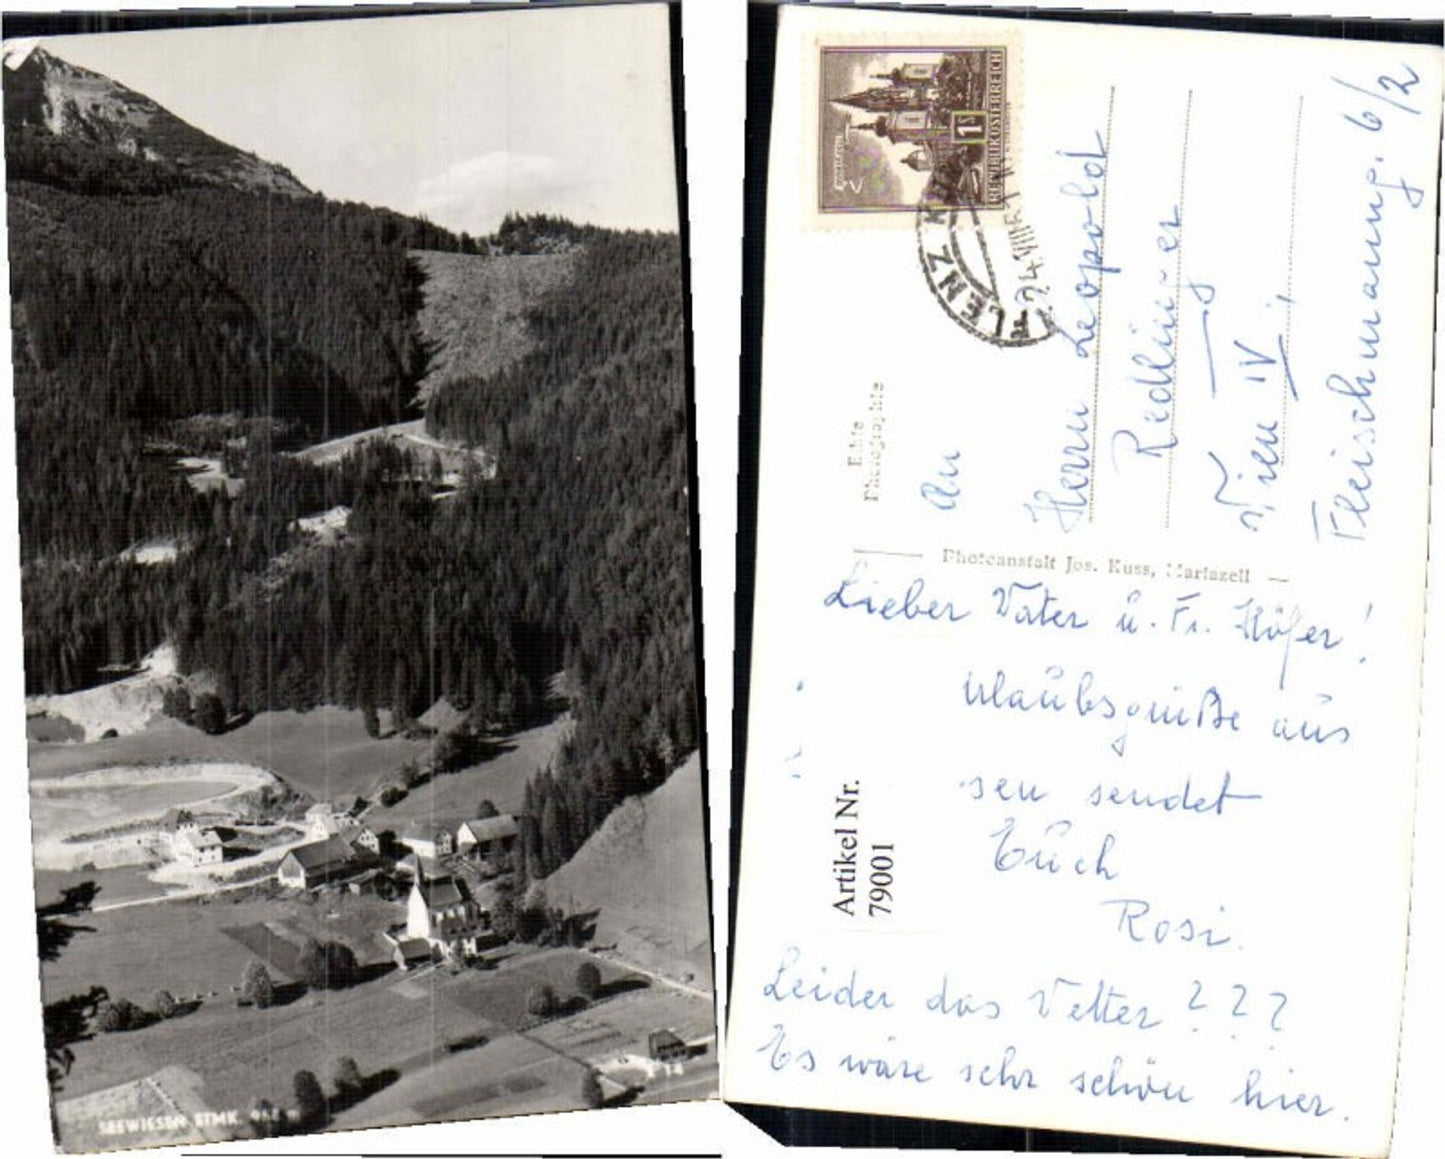 SEEWIESEN STMK.
REPUBLIK ÖSTERREICH
1S
FLENZ
24.VIII.
Echte
Photographie
An
Herrn Leopold
Redlinger
Wien IV,
Fleischmanng. 6/2
Photoanstalt Jos. Kuss, Mariazell
Lieber Vater u. Fr. Höfer!
Urlaubsgrüße aus
sen sendet
Euch
Rosi.
Leider das Wetter ???
Es wäre sehr schön hier.
Artikel Nr.
79001